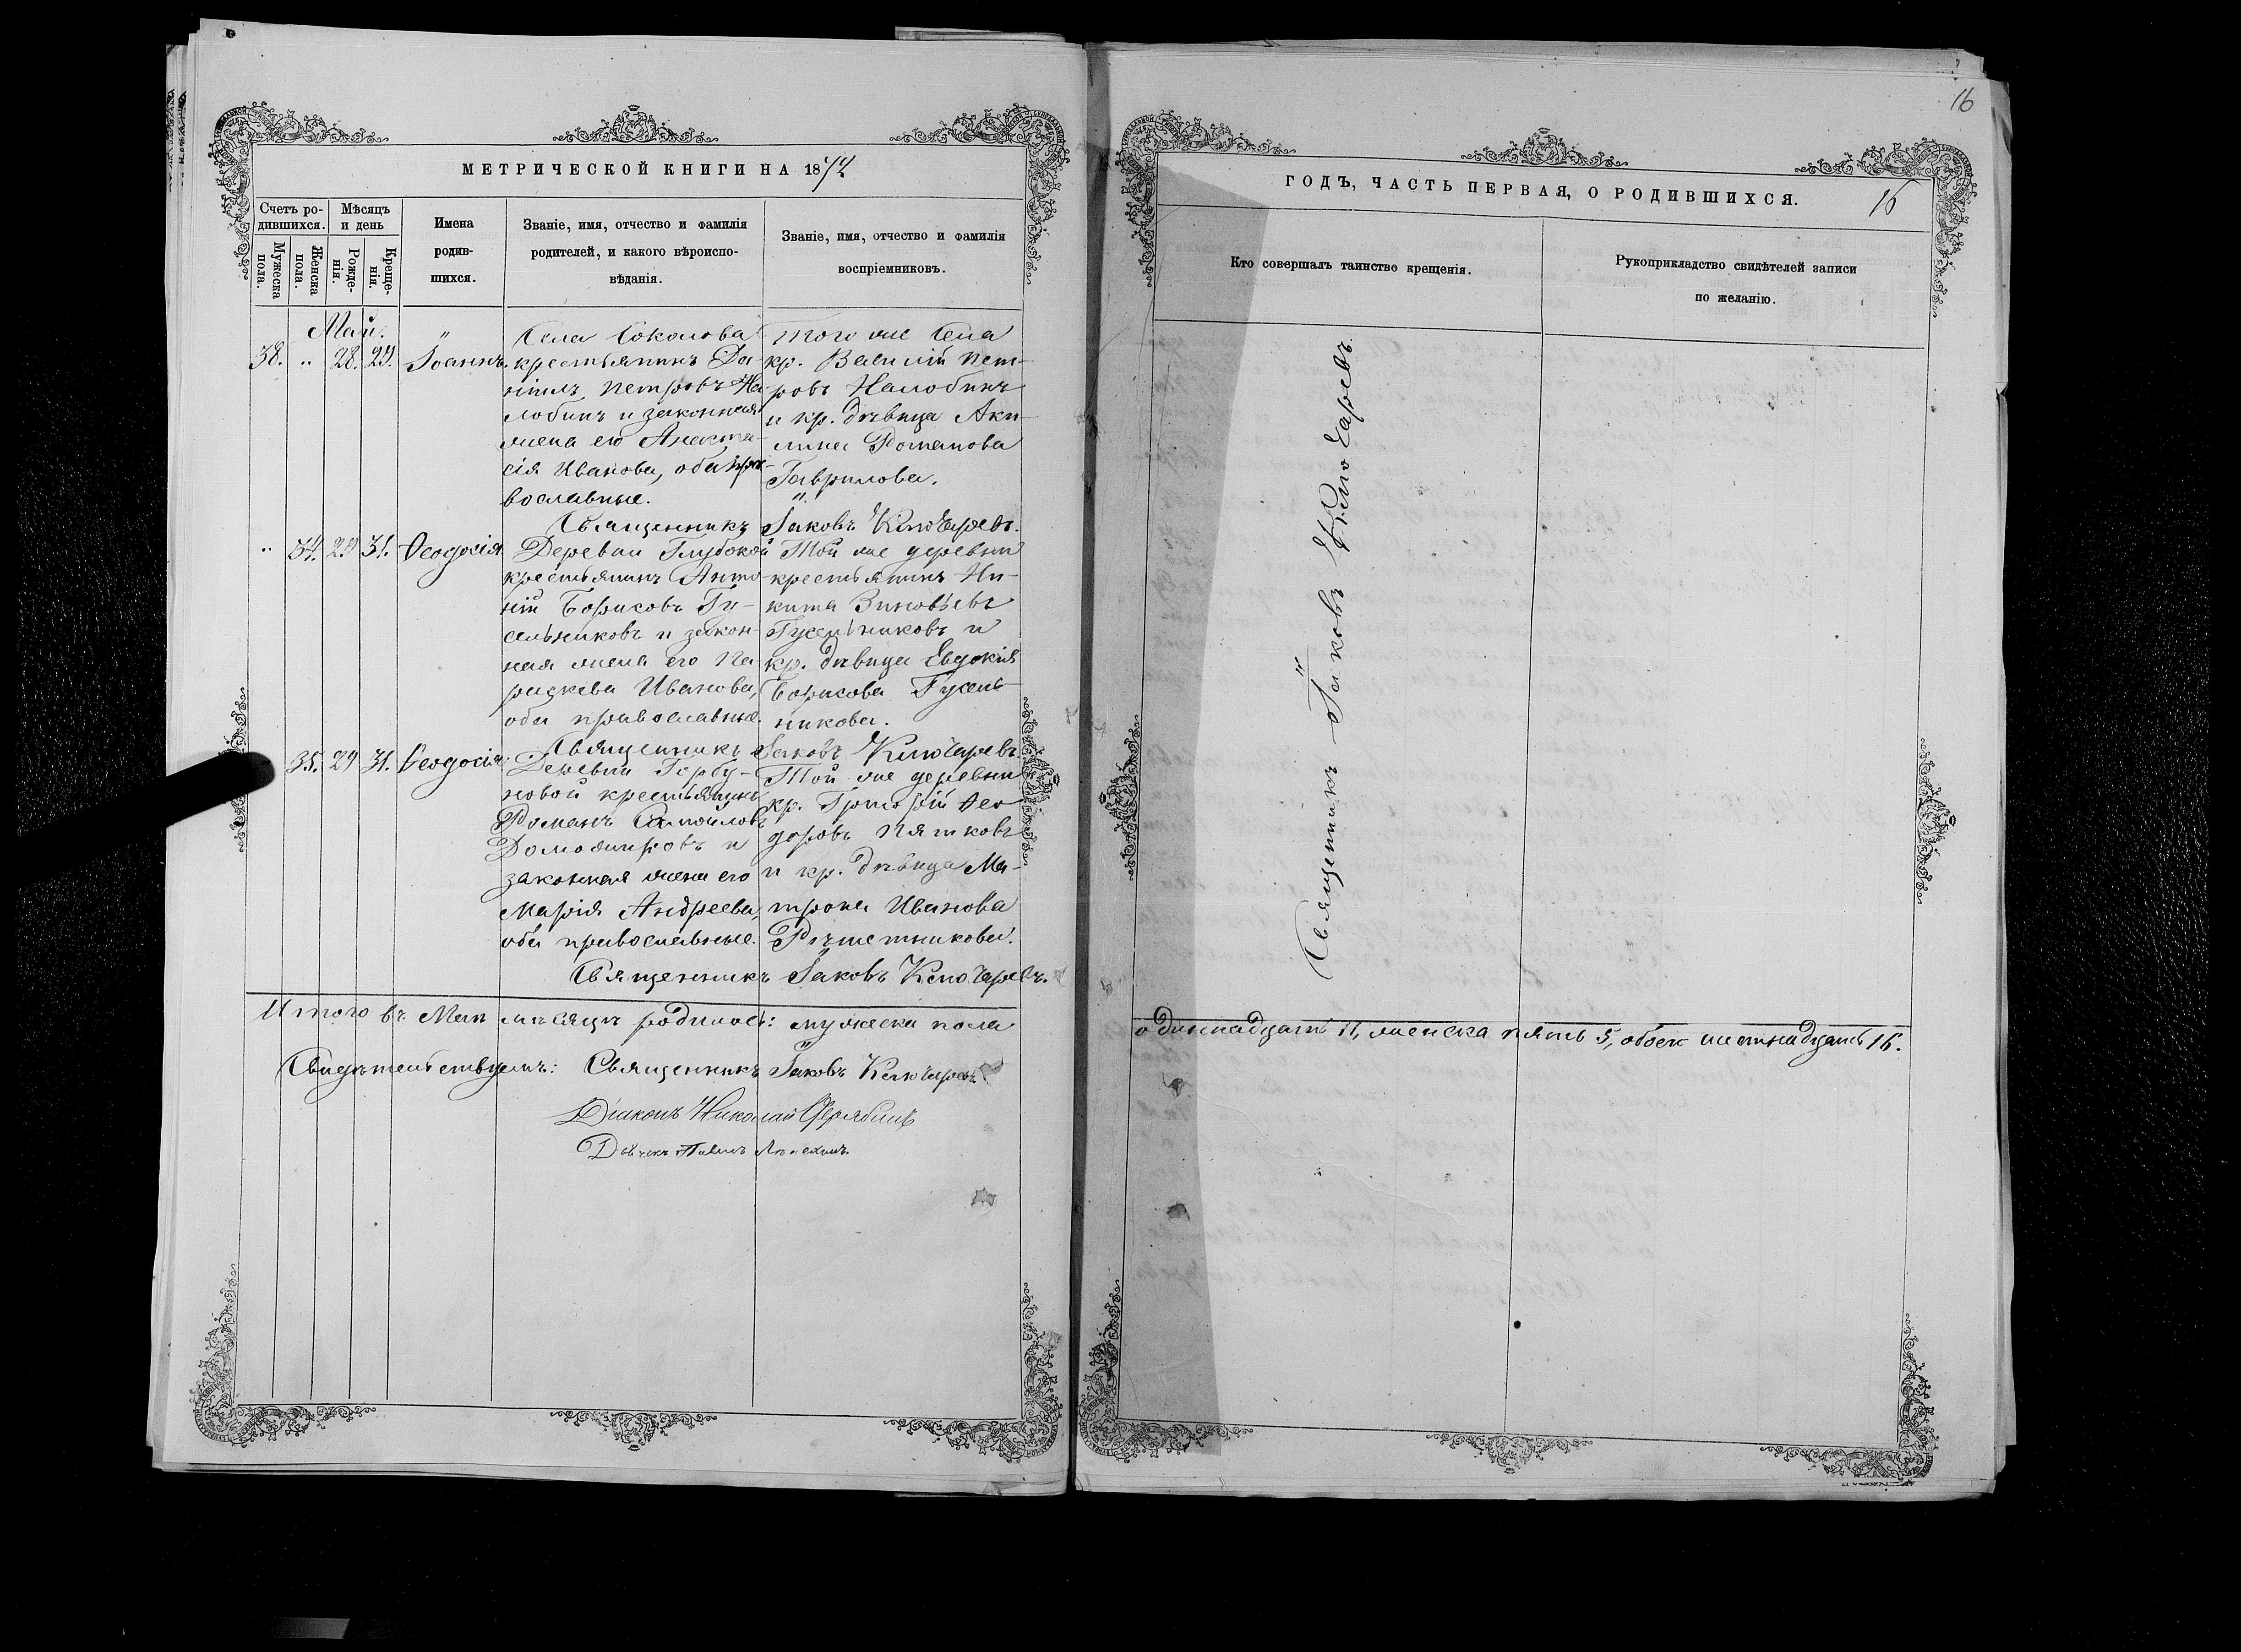 МЕТРИЧЕСКОЙ КНИГИ НА 1874
Счетъ ро-
дившихся.
Мѣсяцъ
и день
Мужеска
пола.
Женска
пола.
Рожде-
нія.
Креще-
нія.
Имена
родив-
шихся.
Званіе, имя, отчество и фамилія
родителей, и какого вѣроиспо-
вѣданія.
Званіе, имя, отчество и фамилія
воспріемниковъ.
Май.
38. „ 28. 29. Іоаннъ.
Села Соколова
крестьянинъ Да-
ніилъ Петровъ На-
лобинъ и законная
жена его Анаста-
сія Иванова, оба пра-
вославные.
Того же села
кр. Василій Пет-
ровъ Налобинъ
и кр. дѣвица Аки-
лина Романова
Гаврилова.
Священникъ Іаковъ Ключаревъ.
„ 34. 29 31. Ѳеодосія
Деревни Глубокой
крестьянинъ Анто-
ній Борисовъ Гу-
сельниковъ и закон-
ная жена его Па-
раскева Иванова,
оба православные.
Той же деревни
крестьянинъ Ни-
кита Зиновьевъ
Гусельниковъ и
кр. дѣвица Евдокія
Борисова Гусель-
никова.
Священникъ Іаковъ Ключаревъ.
35. 29 31. Ѳеодосія
Деревни Горбу-
новой крестьянинъ
Романъ Самойловъ
Доможировъ и
законная жена его
Марія Андреева,
оба православные.
Той же деревни
кр. Григорій Ѳео
доровъ Пятковъ
и кр. дѣвица Ма-
трона Иванова
Рѣшетникова.
Священникъ Іаковъ Ключаревъ.
Итого въ Маѣ мѣсяцѣ родилось: мужеска пола
Свидѣтельствуемъ: Священникъ Іаковъ Ключаревъ
Діаконъ Николай
16
ГОДЪ, ЧАСТЬ ПЕРВАЯ, О РОДИВШИХСЯ.
16
Кто совершалъ таинство крещенія.
Рукоприкладство свидѣтелей записи
по желанію.
Священникъ Іаковъ Ключаревъ.
одиннадцать 11, женска пять 5, обоего шестнадцать 16.